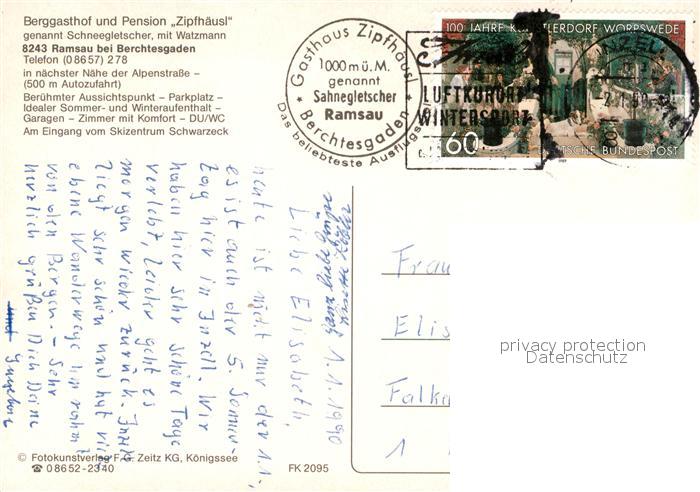 Berggasthof und Pension „Zipfhäusl“
genannt Schneegletscher, mit Watzmann
8243 Ramsau bei Berchtesgaden
Telefon (08657) 278
in nächster Nähe der Alpenstraße –
(500 m Autozufahrt)
Berühmter Aussichtspunkt – Parkplatz –
Idealer Sommer- und Winteraufenthalt –
Garagen – Zimmer mit Komfort – DU/WC
Am Eingang vom Skizentrum Schwarzeck
Gasthaus Zipfhäusl
1000 m ü. M.
genannt
Sahnegletscher
Ramsau
Berchtesgaden
Das beliebteste Ausflugs
100 JAHRE KÜNSTLERDORF WORPSWEDE
60
DEUTSCHE BUNDESPOST
LUFTKURORT
WINTERSPORT
INZELL
1.1.1990
Liebe Elisabeth,
heute ist nicht nur der 1.1.,
es ist auch der 5. Sonnen-
tag hier in Inzell. Wir
haben hier sehr schöne Tage
verlebt, leider geht es
morgen wieder zurück. Inzell
liegt sehr schön und hat viele
ebene Wanderwege umrahmt
von den Bergen. – Sehr
herzlich grüßen Dich Deine
und Ingeborg
ganz liebe Grüße
Frau
Elis
Falke
1
privacy protection
Datenschutz
© Fotokunstverlag F.G. Zeitz KG, Königssee
☎ 08652-2340
FK 2095